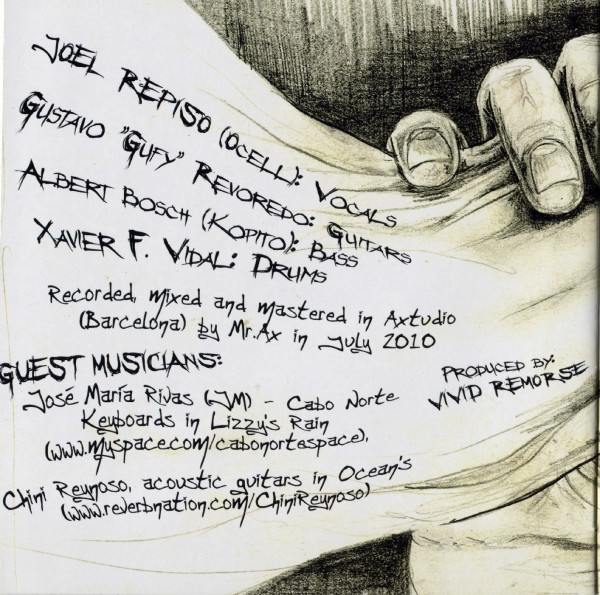 JOEL REPISO (OCELL): VOCALS
GUSTAVO "GUFY" REVOREDO: GUITARS
ALBERT BOSCH (KOPITO): BASS
XAVIER F. VIDAL: DRUMS
Recorded, mixed and mastered in Axtudio
(Barcelona) by Mr.Ax in July 2010
GUEST MUSICIANS:
José María Rivas (JM) - Cabo Norte
Keyboards in Lizzy's Rain
(www.myspace.com/cabonortespace),
Chini Reynoso, acoustic guitars in Ocean's
(www.reverbnation.com/ChiniReynoso)
PRODUCED BY:
VIVID REMORSE